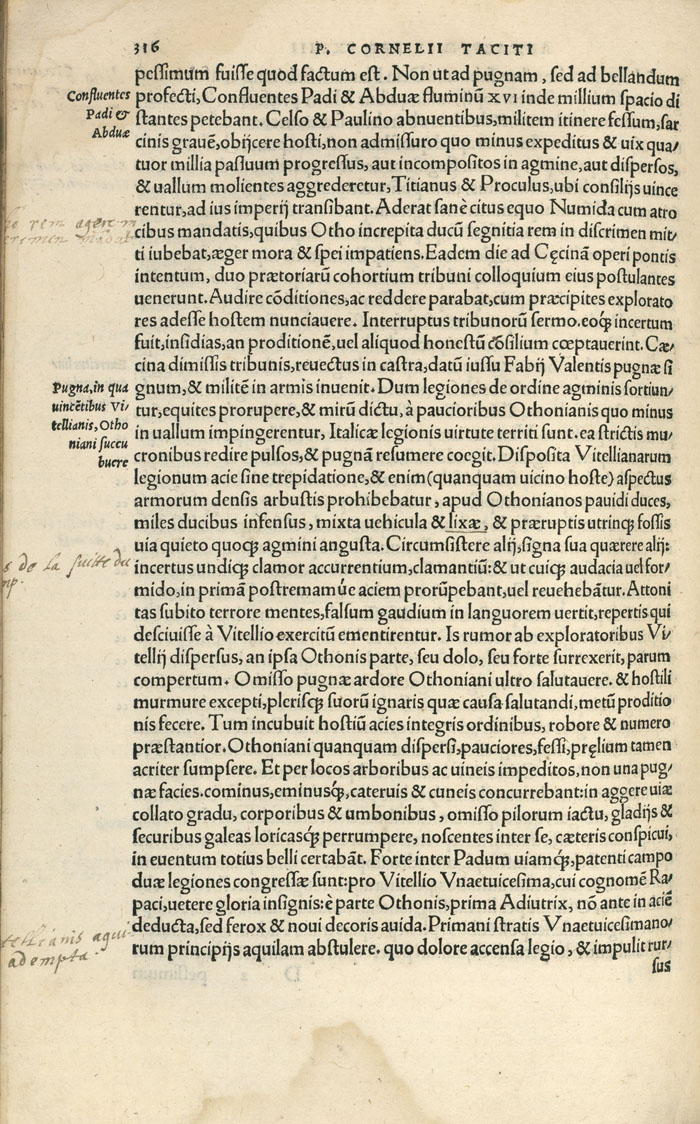 316 P. CORNELII TACITI
pessimum fuisse quod factum est. Non ut ad pugnam, sed ad bellandum
Confluentes
Padi &
Abduæ
profecti, Confluentes Padi & Abduæ fluminũ XVI inde millium spacio di
stantes petebant. Celso & Paulino abnuentibus, militem itinere fessum, sar
cinis grauẽ, obijcere hosti, non admissuro quo minus expeditus & uix qua/
tuor millia passuum progressus, aut incompositos in agmine, aut dispersos,
& uallum molientes aggrederetur, Titianus & Proculus, ubi consilijs uince
rentur, ad ius imperij transibant. Aderat sanè citus equo Numida cum atro
rem agere
cibus mandatis, quibus Otho increpita ducũ segnitia rem in discrimen mit/
ti iubebat, æger mora & spei impatiens. Eadem die ad Cęcinã operi pontis
intentum, duo prætoriarũ cohortium tribuni colloquium eius postulantes
uenerunt. Audire cõditiones, ac reddere parabat, cum præcipites explorato
res adesse hostem nunciauere. Interruptus tribunorũ sermo. eoq́; incertum
fuit, insidias, an proditionẽ, uel aliquod honestũ cõsilium cœptauerint. Cæ/
cina dimissis tribunis, reuectus in castra, datũ iussu Fabij Valentis pugnæ si
Pugna, in qua
uincẽtibus Vi/
tellianis, Otho
niani succu
buere
gnum, & militẽ in armis inuenit. Dum legiones de ordine agminis sortiun/
tur, equites prorupere, & mirũ dictu, à paucioribus Othonianis quo minus
in uallum impingerentur, Italicæ legionis uirtute territi sunt. ea strictis mu/
cronibus redire pulsos, & pugnã resumere coegit. Disposita Vitellianarum
legionum acie sine trepidatione, & enim (quanquam uicino hoste) aspectus
armorum densis arbustis prohibebatur, apud Othonianos pauidi duces,
miles ducibus infensus, mixta uehicula & lixæ, & præruptis utrinq; fossis
s de la suitte du
uia quieto quoq; agmini angusta. Circumsistere alij, signa sua quærere alij:
incertus undiq; clamor accurrentium, clamantiũ: & ut cuiq; audacia uel for/
mido, in primã postremamúe aciem prorũpebant, uel reuehebãtur. Attoni
tas subito terrore mentes, falsum gaudium in languorem uertit, repertis qui
desciuisse à Vitellio exercitũ ementirentur. Is rumor ab exploratoribus Vi/
tellij dispersus, an ipsa Othonis parte, seu dolo, seu forte surrexerit, parum
compertum. Omisso pugnæ ardore Othoniani ultro salutauere. & hostili
murmure excepti, plerisq; suorũ ignaris quæ causa salutandi, metũ proditio
nis fecere. Tum incubuit hostiũ acies integris ordinibus, robore & numero
præstantior. Othoniani quanquam dispersi, pauciores, fessi, pręlium tamen
acriter sumpsere. Et per locos arboribus ac uineis impeditos, non una pug/
næ facies. cominus, eminusq́;, cateruis & cuneis concurrebant: in aggere uiæ
collato gradu, corporibus & umbonibus, omisso pilorum iactu, gladijs &
securibus galeas loricasq́; perrumpere, noscentes inter se, cæteris conspicui,
in euentum totius belli certabãt. Forte inter Padum uiamq́;, patenti campo
duæ legiones congressæ sunt: pro Vitellio Vnaetuicesima, cui cognomẽ Ra/
paci, uetere gloria insignis: è parte Othonis, prima Adiutrix, nõ ante in aciẽ
tellianis aqui
adempta.
deducta, sed ferox & noui decoris auida. Primani stratis Vnaetuicesimano/
rum principijs aquilam abstulere. quo dolore accensa legio, & impulit rur/
sus